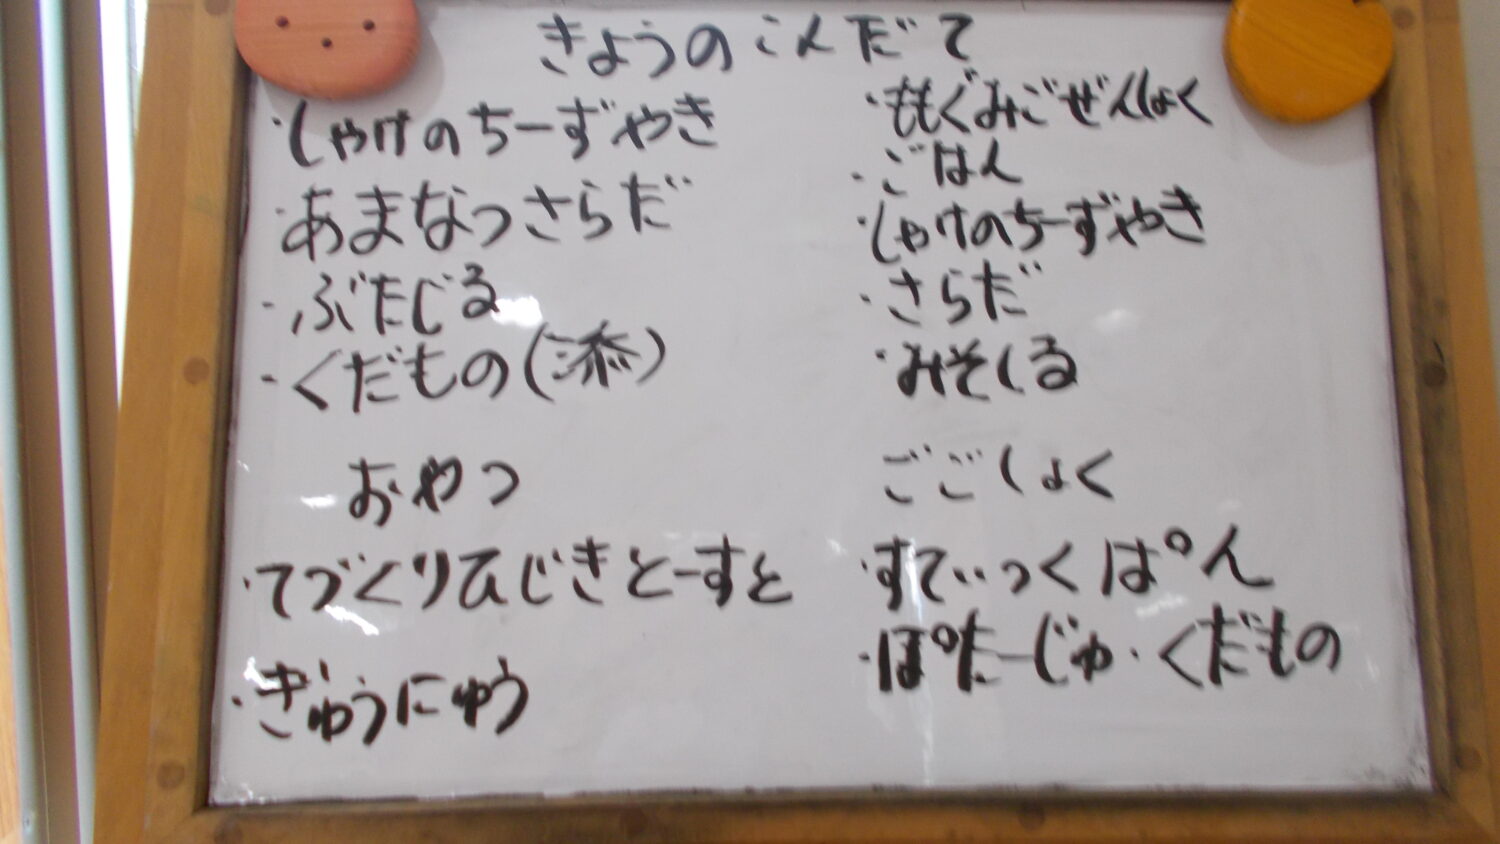 きょうのこんだて
・しゃけのちーずやき
・あまなっさらだ
・ぶたじる
・くだもの(添)
おやつ
・てづくりひじきとーすと
・ぎゅうにゅう
・ももぐみごぜんしょく
・ごはん
・しゃけのちーずやき
・さらだ
・みそしる
ごごしょく
・すてぃっくぱん
・ぽたーじゅ・くだもの